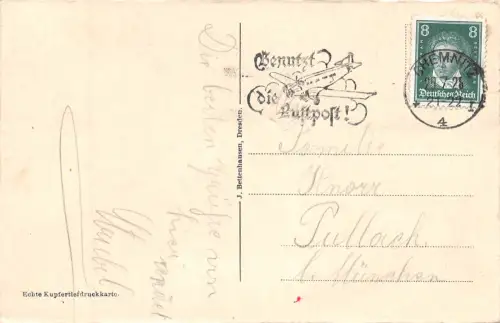 Die besten Grüße von
hier
Benutzt
die
Luftpost!
CHEMNITZ
4
8 8
Deutsches Reich
Familie
Knorr
Pullach
b. München
J. Bettenhausen, Dresden.
Echte Kupfertiefdruckkarte.